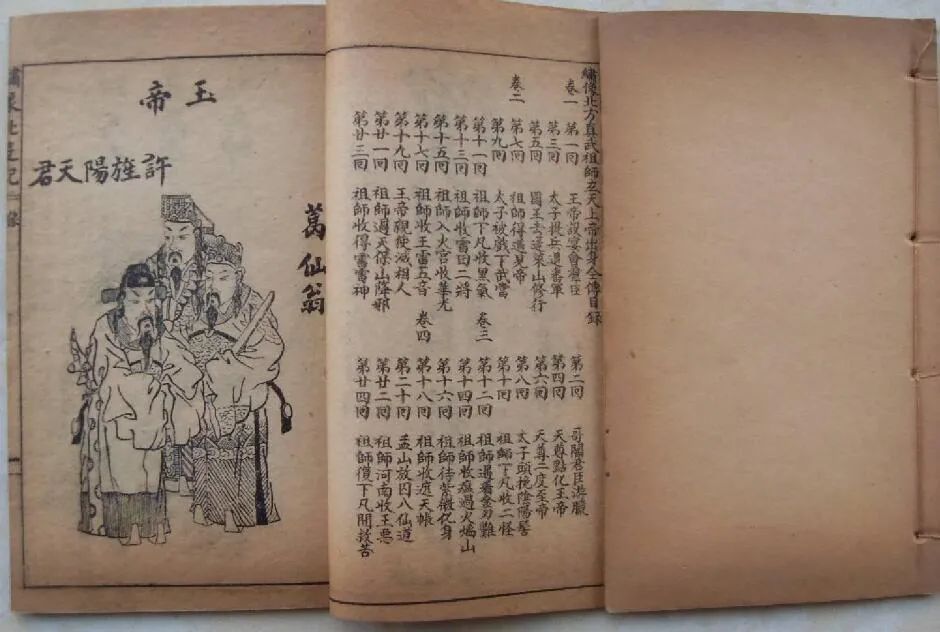 繡像北方真武祖師玄天上帝出身全傳目錄
卷一
第一回 玉帝設宴會羣臣 第二回 哥闍君臣游獵
第三回 太子提兵退 軍 第四回 天尊點化玉帝
第五回 國王去蓬萊山修行 第六回 天尊二度至帝
卷二
第七回 祖師得道見帝 第八回 太子頭挽陰陽髻
第九回 太子被戲下武當 第十回 祖師下凡收二怪
卷三
第十一回 祖師下凡收黑氣 第十二回 祖師遇 難
第十三回 祖師收雷田二將 第十四回 祖師收瘟過火焰山
第十五回 祖師入火宮收華光 第十六回 祖師待紫微化身
第十七回 祖師收王雷五音 第十八回 祖師收遮天帳
卷四
第十九回 王帝 相人 第二十回 孟山放囚八仙道
第廿一回 祖師過天保山降邪 第廿二回 祖師河南收王惡
第廿三回 祖師收得雷 神 第廿四回 祖師復下凡間救苦
玉帝
許旌陽天君
葛仙翁
繡像北遊記